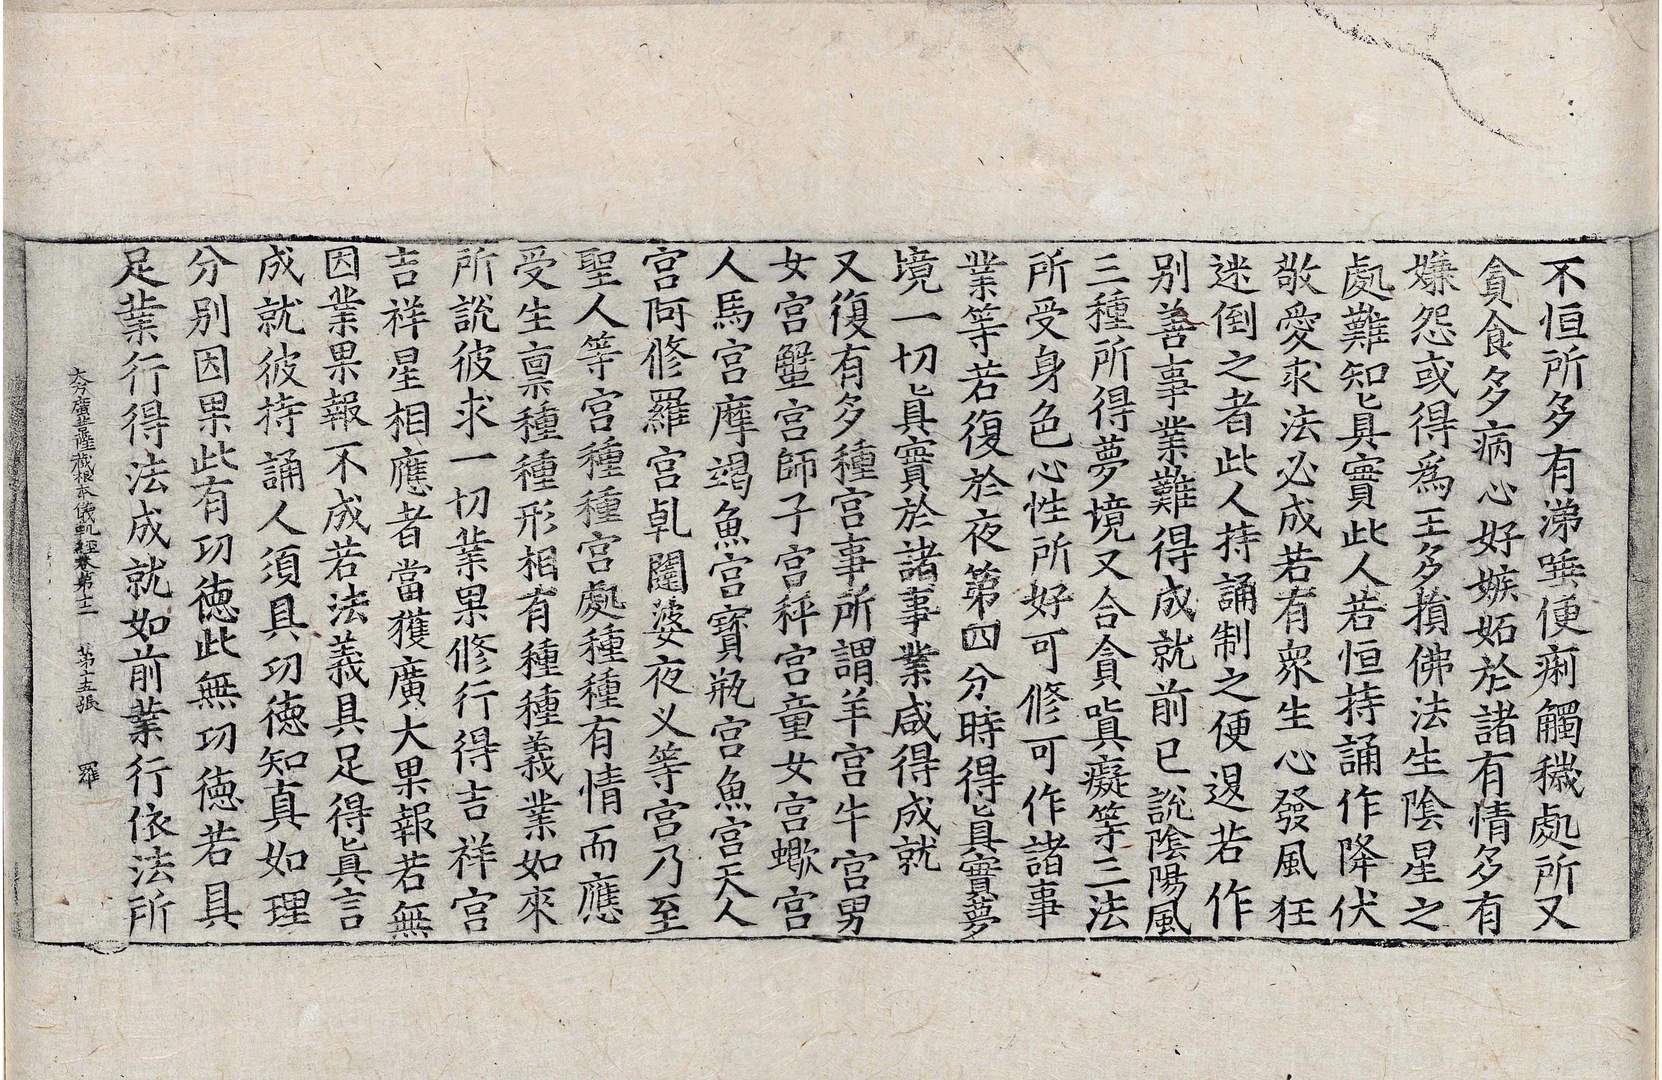 不恒所多有涕唾便痢觸穢處所又
貪食多病心好嫉妬於諸有情多有
嫌怨或得為王多損佛法生陰星之
處難知真實此人若恒持誦作降伏
敬愛求法必成若有衆生心發風狂
迷倒之者此人持誦制之便退若作
别善事業難得成就前已說陰陽風
三種所得夢境又合貪嗔癡等三法
所受身色心性所好可修可作諸事
業等若復於夜第四分時得真實夢
境一切真實於諸事業咸得成就
又復有多種宮事所謂羊宮牛宮男
女宮蟹宮師子宮秤宮童女宮蠍宮
人馬宮摩竭魚宮寶瓶宮魚宮天人
宮阿修羅宮乹闥婆夜义等宮乃至
聖人等宮種種宮處種種有情而應
受生禀種種形相有種種義業如來
所說彼求一切業果修行得吉祥宮
吉祥星相應者當獲廣大果報若無
因業果報不成若法義具足得真言
成就彼持誦人須具功徳知真如理
分別因果此有功徳此無功徳若具
足業行得法成就如前業行依法所
大方廣菩薩藏根本儀軌經卷第十二 第十五張 羅